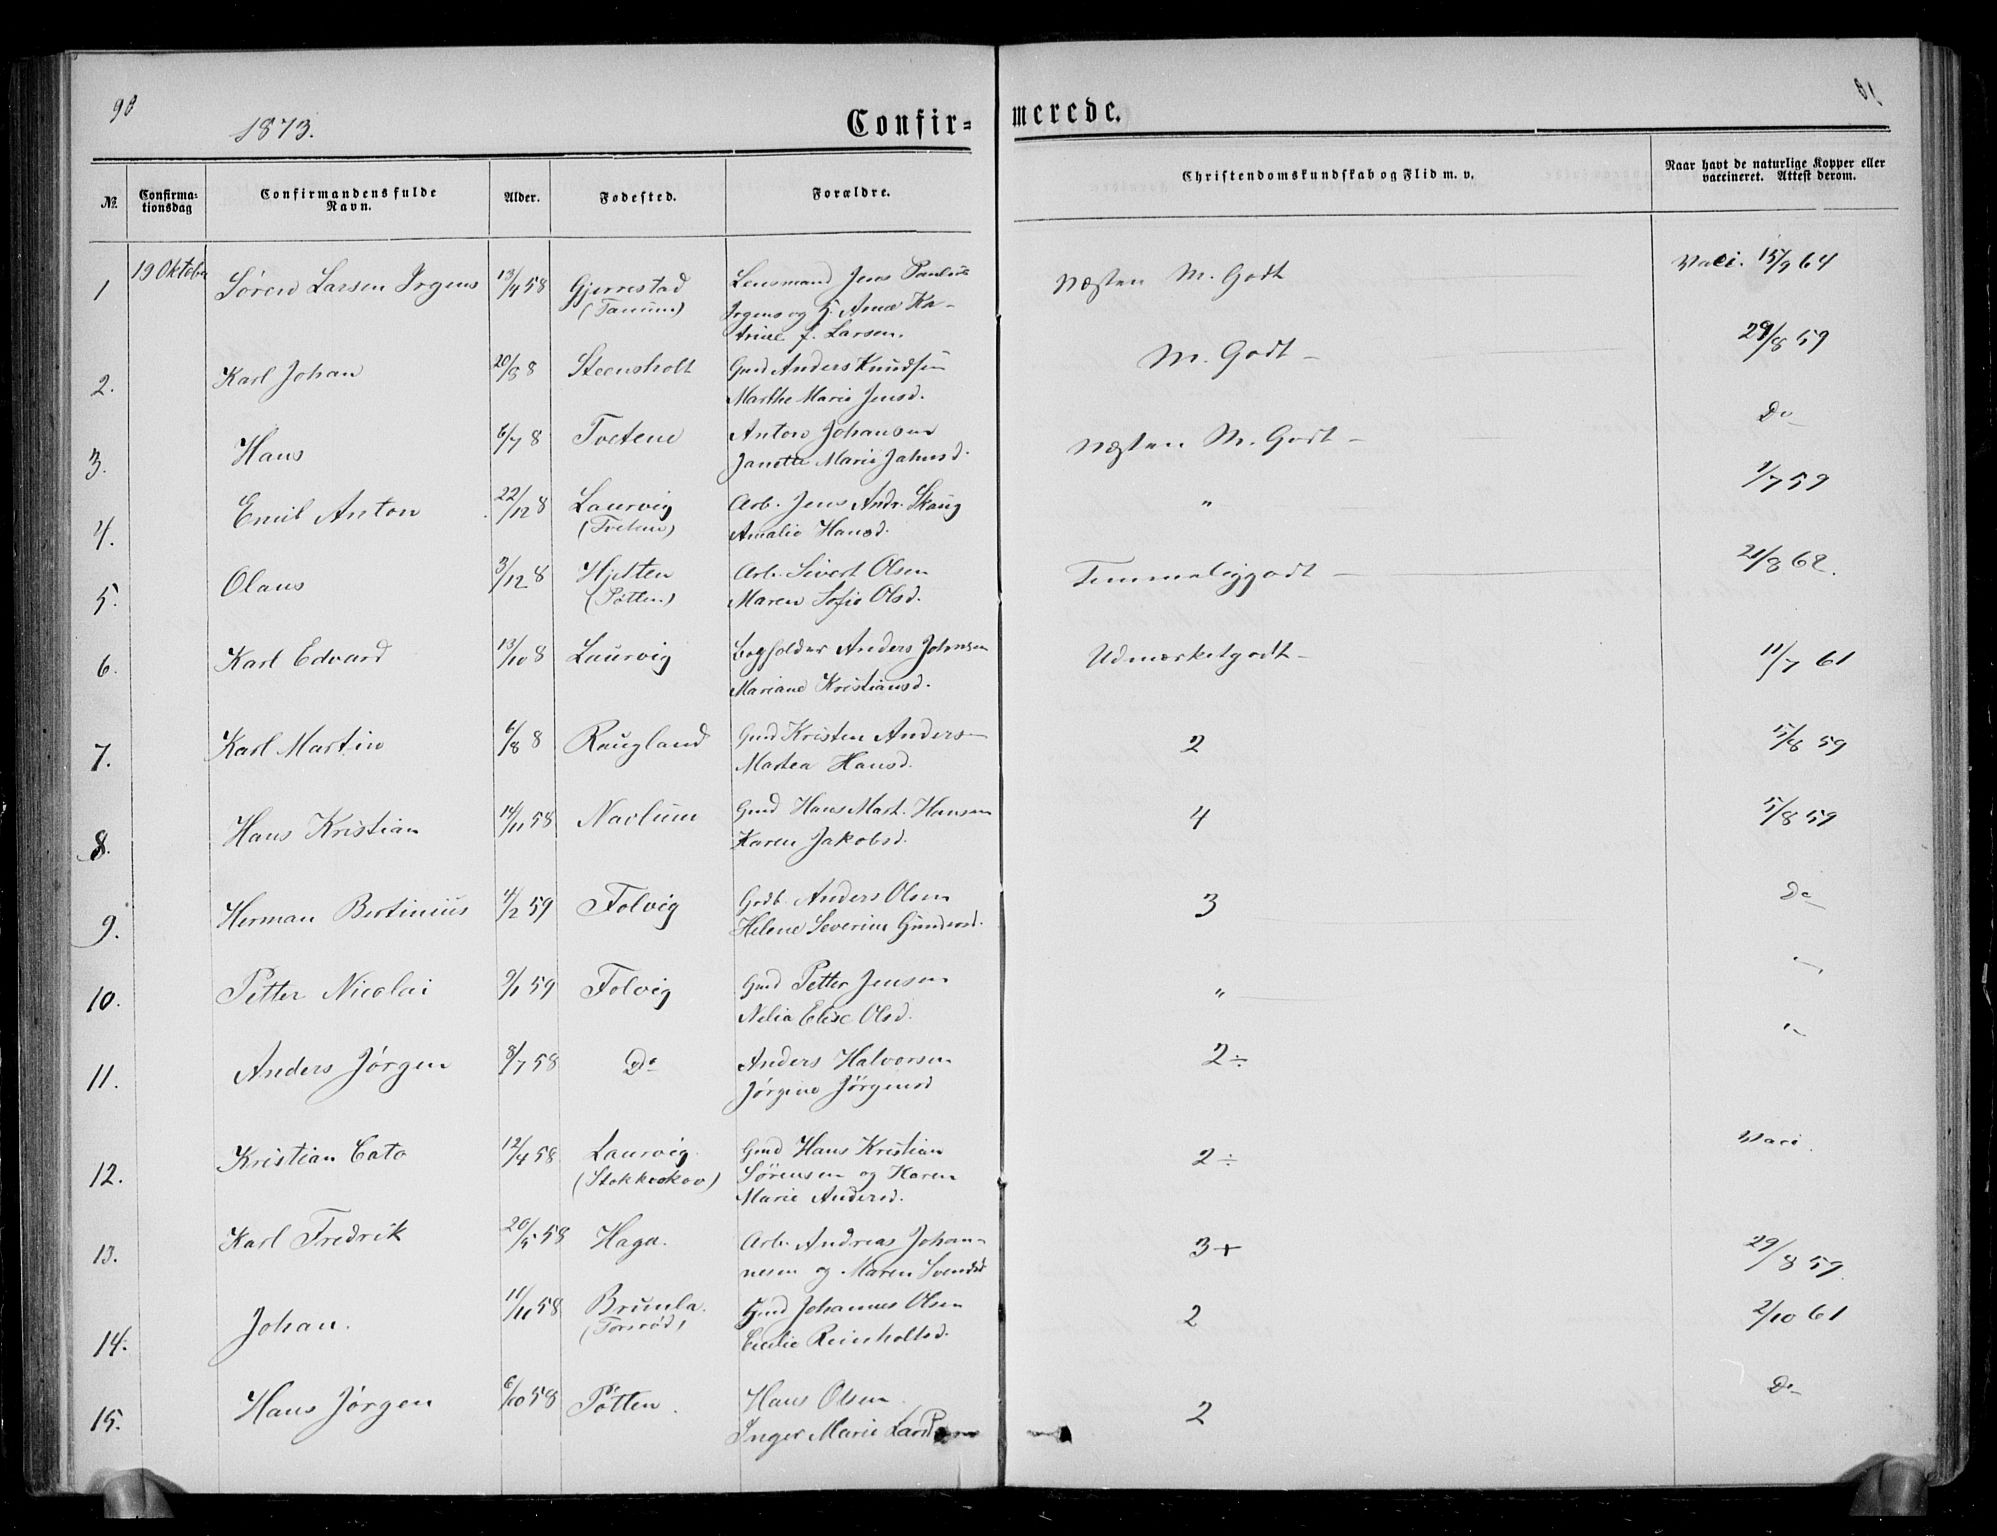 90
1873.
Confir=
merede.
№.
Confirma-
tionsdag
Confirmandens fulde
Navn.
Alder.
Fødested.
Forældre.
Christendomskundskab og Flid m. v.
Naar havt de naturlige Kopper eller
vaccineret. Attest derom.
1 19 Oktober Søren Larsen Irgens 13/4 58 Gjerrestad Lensmand Jens Paulus Næsten M. Godt Vaci. 15/9 64
(Tanum) Irgens og H. Anne Ka-
trine f. Larsen.
2. Karl Johan 20/8 8 Steensholt Gmd Anders Knudsen M. Godt 29/8 59
Marthe Marie Jensd.
3. Haus 6/7 8 Tvetene Anton Johansen Næsten M. Godt Do
Janette Marie Jahnsd.
4. Emil Anton 22/12 8 Laurvig Arb. Jens Andr. Skaug " 1/7 59
(Tvetene) Amalie Hansd.
5. Olaus 3/12 8 Hjetten Arb. Sivert Olsen Temmeliggodt 21/8 62.
(Pøtten) Maren Sofie Olsd.
6. Karl Edvard 13/10 8 Laurvig Bogholder Anders Johnsen Udmærketgodt 11/7 61
Mariane Kristiansd.
7. Karl Martin 6/8 8 Raugland Gmd Kristen Anders 2 5/8 59
Martea Hansd.
8. Hans Kristian 14/11 58 Navlum Gmd Hans Mart. Hansen 4 5/8 59
Karen Jakobsd.
9. Herman Bertinius 4/2 59 Folvig Grdb. Anders Olsen 3 Do
Helene Severine Gundersd.
10. Petter Nicolai 9/1 59 Folvig Gmd Petter Jensen " "
Nilia Elise Olsd.
11. Anders Jørgen 8/7 58 Do Anders Halvorsen 2÷ "
Jørgine Jørgensd
12. Kristian Cato 12/4 58 Laurvig. Gmd Hans Kristian 2÷ Vaci.
(Stokkeskov) Sørensen og Karen
Marie Andersd.
13. Karl Fredrik 20/5 58 Hagn. Arb. Andreas Johan- 3+ 29/8 59
nesen og Maren Svendsd
14. Johan. 11/11 58 Brunla. Gmd Johannes Olsen 2 2/10 61
(Torsrød) Cecilie Reinholtsd.
15. Hans Jørgen 6/10 58 Pøtten. Hans Olsen. 2 Do
Inger Marie